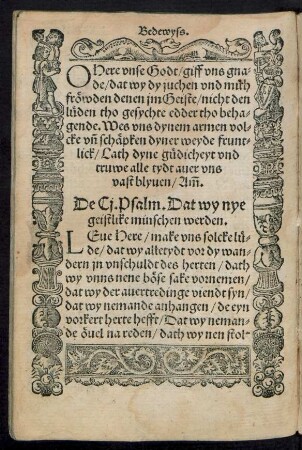 Bedewyss.
O Here vnse Godt/giff vns gna-
de/dat wy dy juchen vnd mith
fröwden denen jm Geiste/nicht den
lüden tho gesychte edder tho beha-
gende. Wes vns dynem armen vol-
cke vñ schäpken dyner weyde frunt-
lick/Lath dyne güdicheyt vnd
truwe alle tydt auer vns
vast blyuen/Am̄.
De Cj. Psalm. Dat wy nye
geistlike minschen werden.
LEue Here/make vns solcke lü-
de/dat wy alletydt vor dy wan-
dern jn vnschuldt des herten/dath
wy vnns nene böse sake vornemen/
dat wy der auertredinge viendt syn/
dat wy nemande anhangen/de eyn
vorkert herte hefft/Dat wy neman-
de öuel na reden/dath wy nen stol-